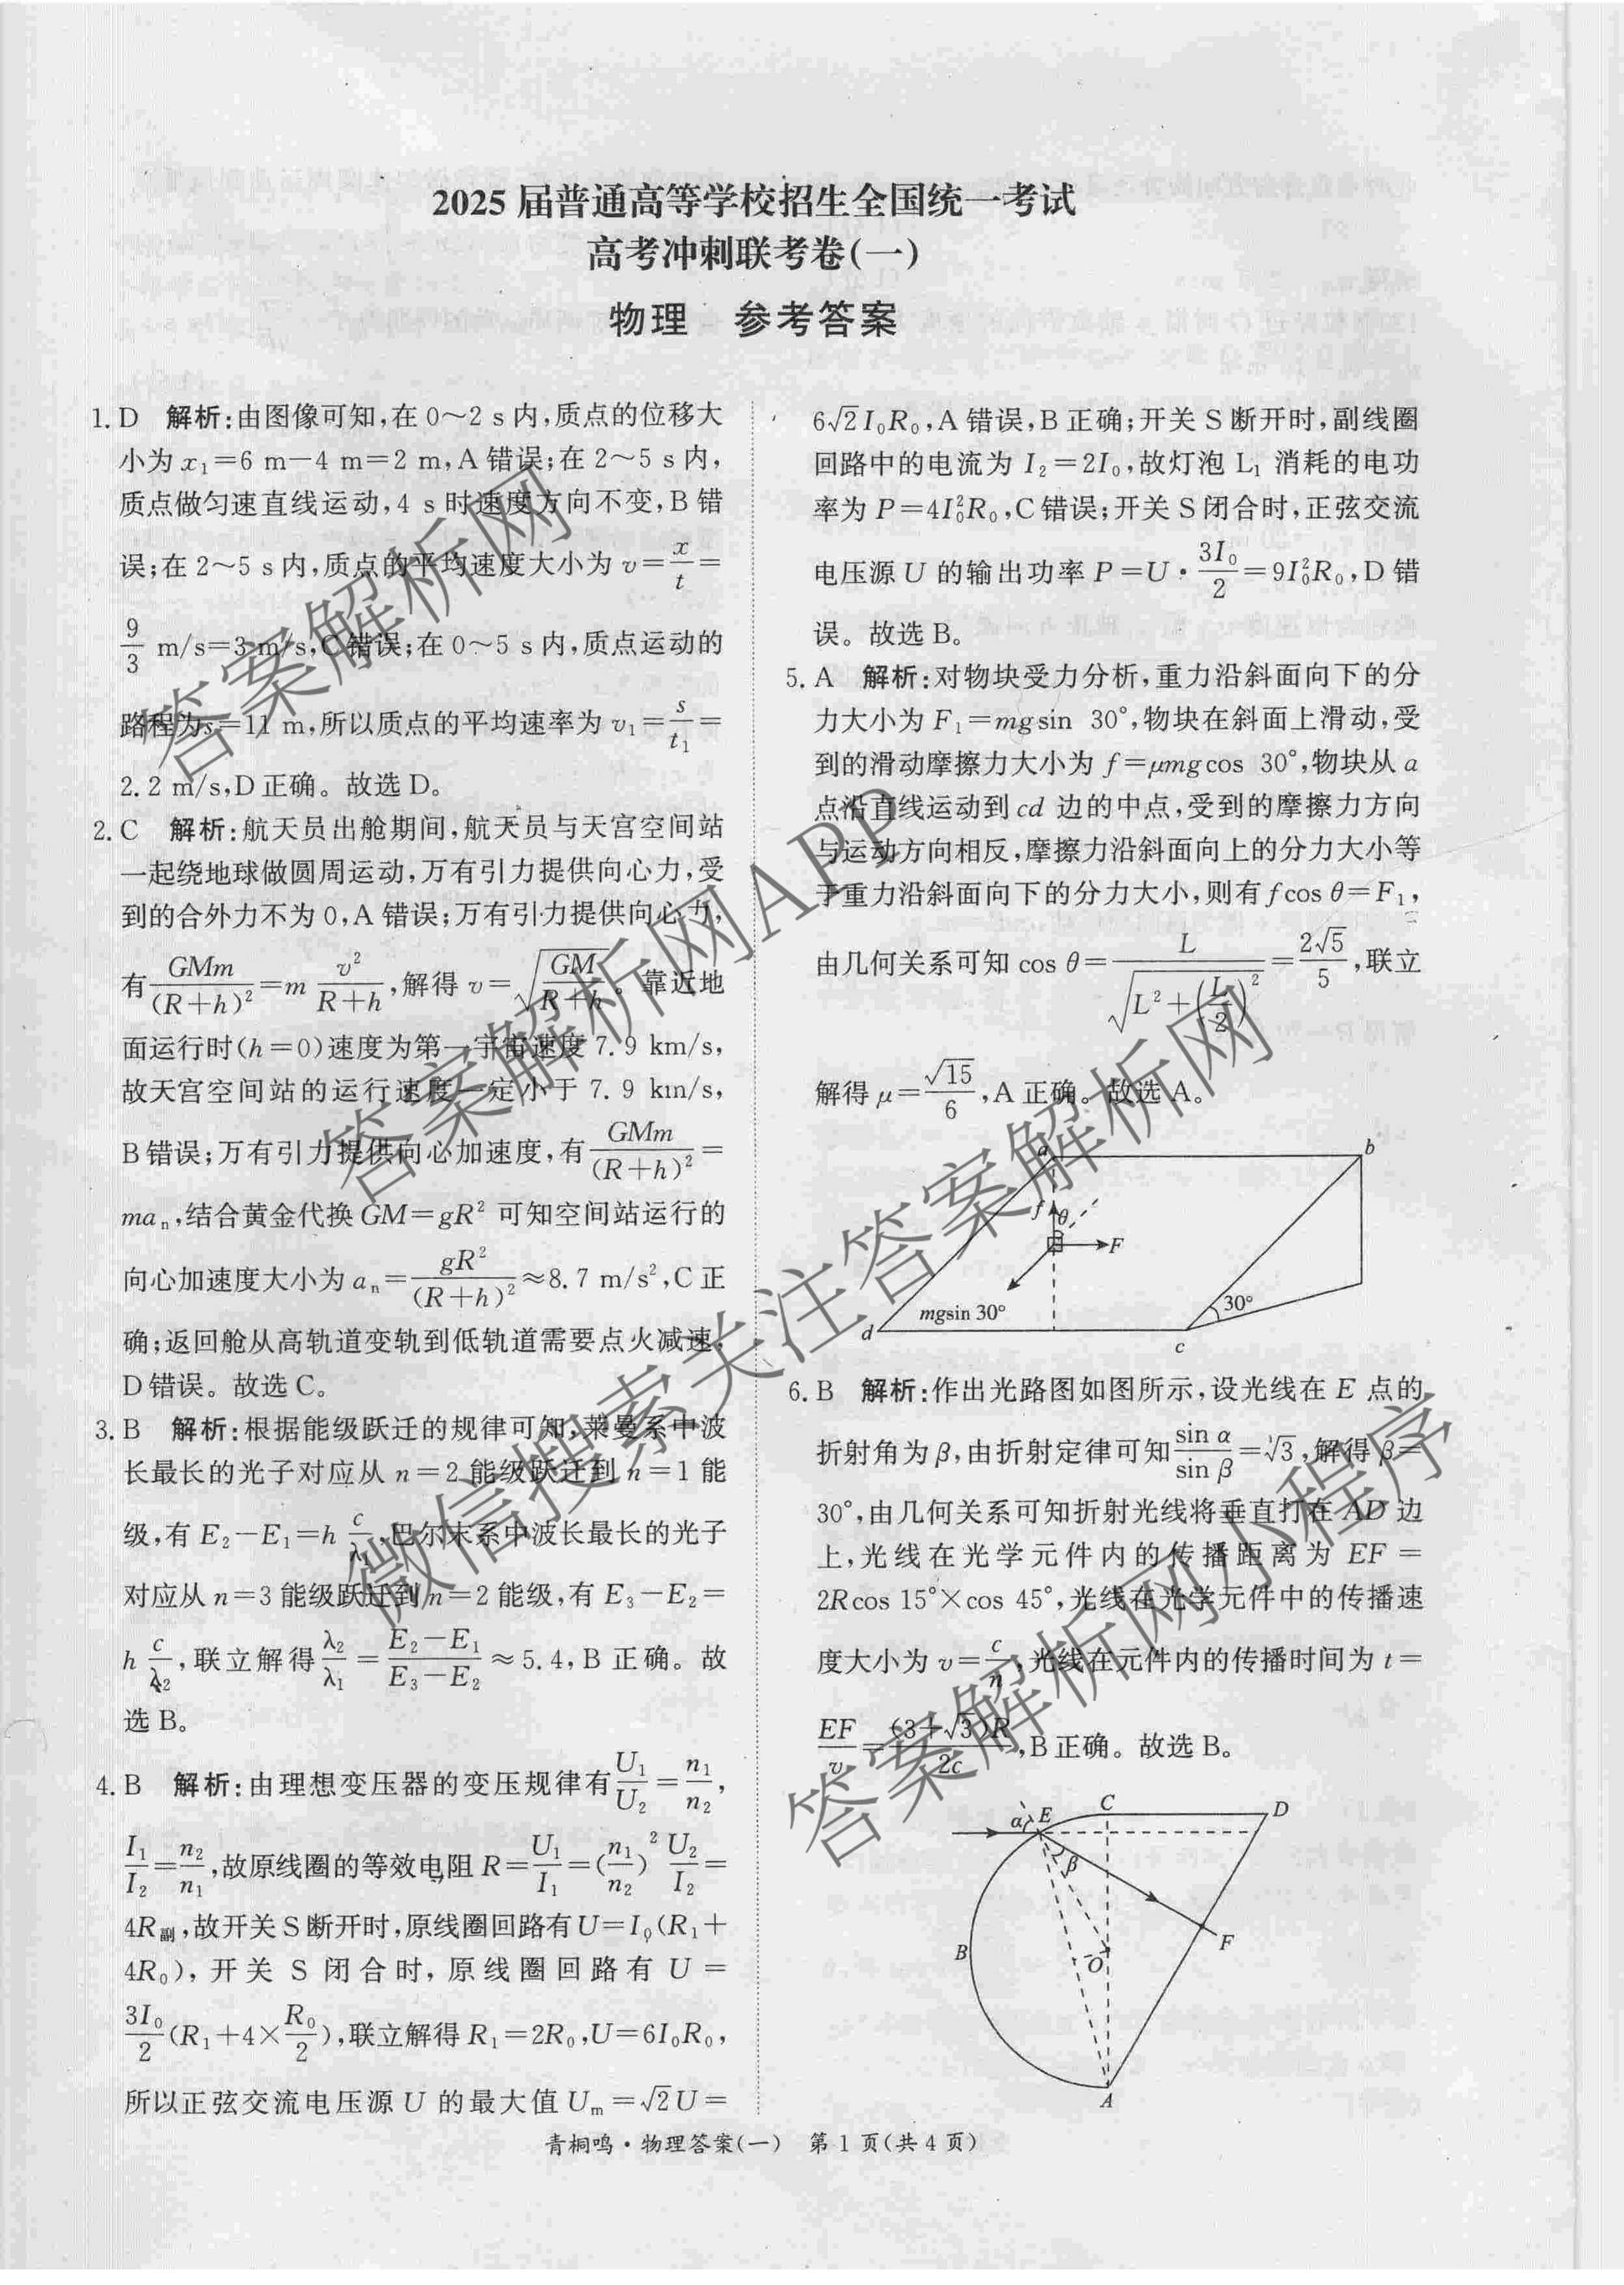 2025 届普通高等学校招生全国统一考试
高考冲刺联考卷(一)
物理 参考答案
1. D 解析:由图像可知,在 0～2 s 内,质点的位移大
小为 x₁=6 m-4 m=2 m,A 错误;在 2～5 s 内,
质点做匀速直线运动,4 s 时速度方向不变,B 错
误;在 2～5 s 内,质点的平均速度大小为 v=x/t=
9/3 m/s=3 m/s,C 错误;在 0～5 s 内,质点运动的
路程为 s=11 m,所以质点的平均速率为 v₁=s/t₁=
2.2 m/s,D 正确。故选 D。
2. C 解析:航天员出舱期间,航天员与天宫空间站
一起绕地球做圆周运动,万有引力提供向心力,受
到的合外力不为 0,A 错误;万有引力提供向心力,
有 GMm/(R+h)²=m v²/(R+h),解得 v=√(GM/(R+h))。靠近地
面运行时(h=0)速度为第一宇宙速度 7.9 km/s,
故天宫空间站的运行速度一定小于 7.9 km/s,
B 错误;万有引力提供向心加速度,有 GMm/(R+h)²=
maₙ,结合黄金代换 GM=gR² 可知空间站运行的
向心加速度大小为 aₙ=gR²/(R+h)²≈8.7 m/s²,C 正
确;返回舱从高轨道变轨到低轨道需要点火减速,
D 错误。故选 C。
3. B 解析:根据能级跃迁的规律可知,莱曼系中波
长最长的光子对应从 n=2 能级跃迁到 n=1 能
级,有 E₂-E₁=h c/λ₁,巴尔末系中波长最长的光子
对应从 n=3 能级跃迁到 n=2 能级,有 E₃-E₂=
h c/λ₂,联立解得 λ₂/λ₁=(E₂-E₁)/(E₃-E₂)≈5.4,B 正确。故
选 B。
4. B 解析:由理想变压器的变压规律有 U₁/U₂=n₁/n₂,
I₁/I₂=n₂/n₁,故原线圈的等效电阻 R=U₁/I₁=(n₁/n₂)²U₂/I₂=
4R副,故开关 S 断开时,原线圈回路有 U=I₀(R₁+
4R₀),开关 S 闭合时,原线圈回路有 U=
3I₀/2(R₁+4×R₀/2),联立解得 R₁=2R₀,U=6I₀R₀,
所以正弦交流电压源 U 的最大值 Uₘ=√2U=
6√2I₀R₀,A 错误,B 正确;开关 S 断开时,副线圈
回路中的电流为 I₂=2I₀,故灯泡 L₁ 消耗的电功
率为 P=4I₀²R₀,C 错误;开关 S 闭合时,正弦交流
电压源 U 的输出功率 P=U·3I₀/2=9I₀²R₀,D 错
误。故选 B。
5. A 解析:对物块受力分析,重力沿斜面向下的分
力大小为 F₁=mgsin 30°,物块在斜面上滑动,受
到的滑动摩擦力大小为 f=μmgcos 30°,物块从 a
点沿直线运动到 cd 边的中点,受到的摩擦力方向
与运动方向相反,摩擦力沿斜面向上的分力大小等
于重力沿斜面向下的分力大小,则有 fcos θ=F₁,
由几何关系可知 cos θ=L/√(L²+(L/2)²)=2√5/5,联立
解得 μ=√15/6,A 正确。故选 A。
a
b
f
θ
F
mgsin 30°
30°
d
c
6. B 解析:作出光路图如图所示,设光线在 E 点的
折射角为 β,由折射定律可知 sin α/sin β=√3,解得 β=
30°,由几何关系可知折射光线将垂直打在 AD 边
上,光线在光学元件内的传播距离为 EF=
2Rcos 15°×cos 45°,光线在光学元件中的传播速
度大小为 v=c/n,光线在元件内的传播时间为 t=
EF/v=(3+√3)R/2c,B 正确。故选 B。
α
E
C
D
β
B
O
F
A
青桐鸣·物理答案(一) 第 1 页(共 4 页)
答案解析网
答案解析网APP
微信搜索关注答案解析网
答案解析网小程序